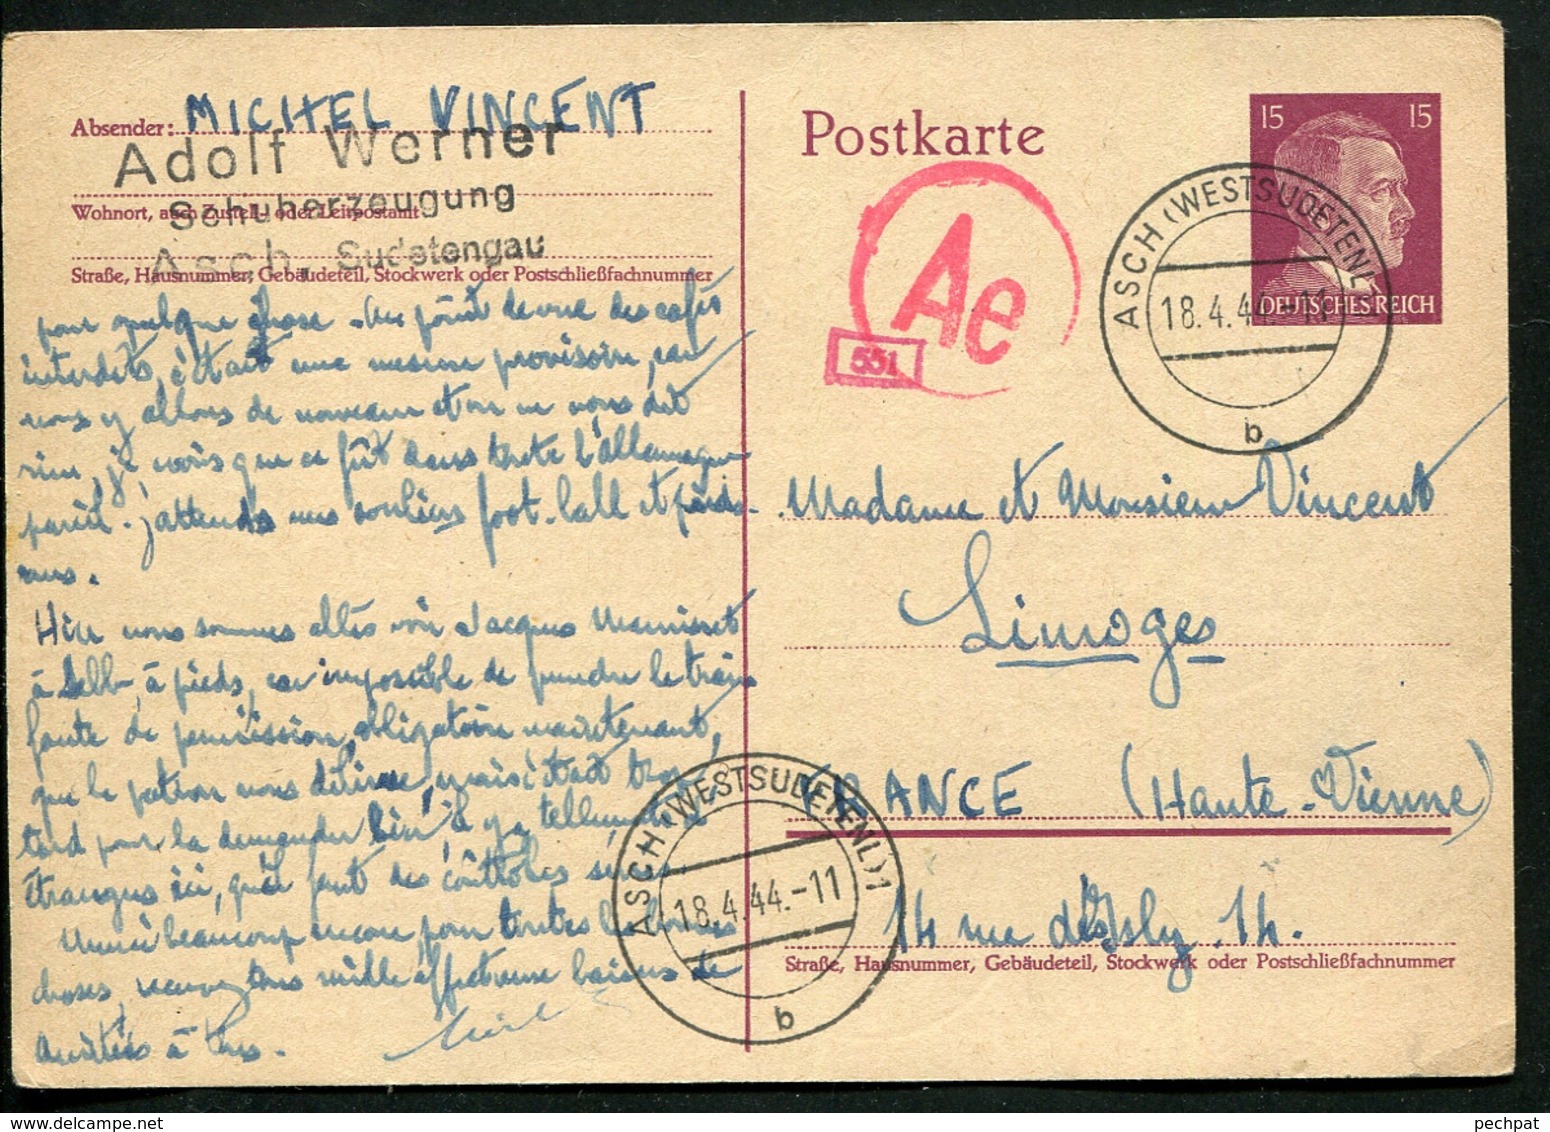 Absender: MICHEL VINCENT
Adolf Werner
Schuherzeugung
Wohnort, auch Zustell- oder Leitpostamt
Asch, Sudetengau
Straße, Hausnummer, Gebäudeteil, Stockwerk oder Postschließfachnummer
pour quelque chose. Au point de vue des cafés
interdits, c'était une mesure provisoire, car
nous y allons de nouveau et on ne nous dit
rien, je crois que ce fût dans toute l'Allemagne
pareil. J'attends mes souliers foot-ball et
Hier nous sommes allés voir Jacques
à Selb, à pieds, car impossible de prendre le train
faute de permission, obligatoire maintenant,
que le patron nous délivre, mais c'était trop
tard pour la demander hier, il y a tellement d'
étrangers ici, qu'il faut des contrôles sérieux.
Merci beaucoup encore pour toutes les bonnes
choses, recevez tous mille affectueux baisers de
Amitiés à tous.
Michel
Postkarte
15 15
DEUTSCHES REICH
ASCH (WESTSUDETENL) 1
18.4.44.-11
b
Ae
551
Madame et Monsieur Vincent
Limoges
FRANCE (Haute-Vienne)
14 rue d'Isly. 14.
Straße, Hausnummer, Gebäudeteil, Stockwerk oder Postschließfachnummer
ASCH (WESTSUDETENL) 1
18.4.44.-11
b
pechpat